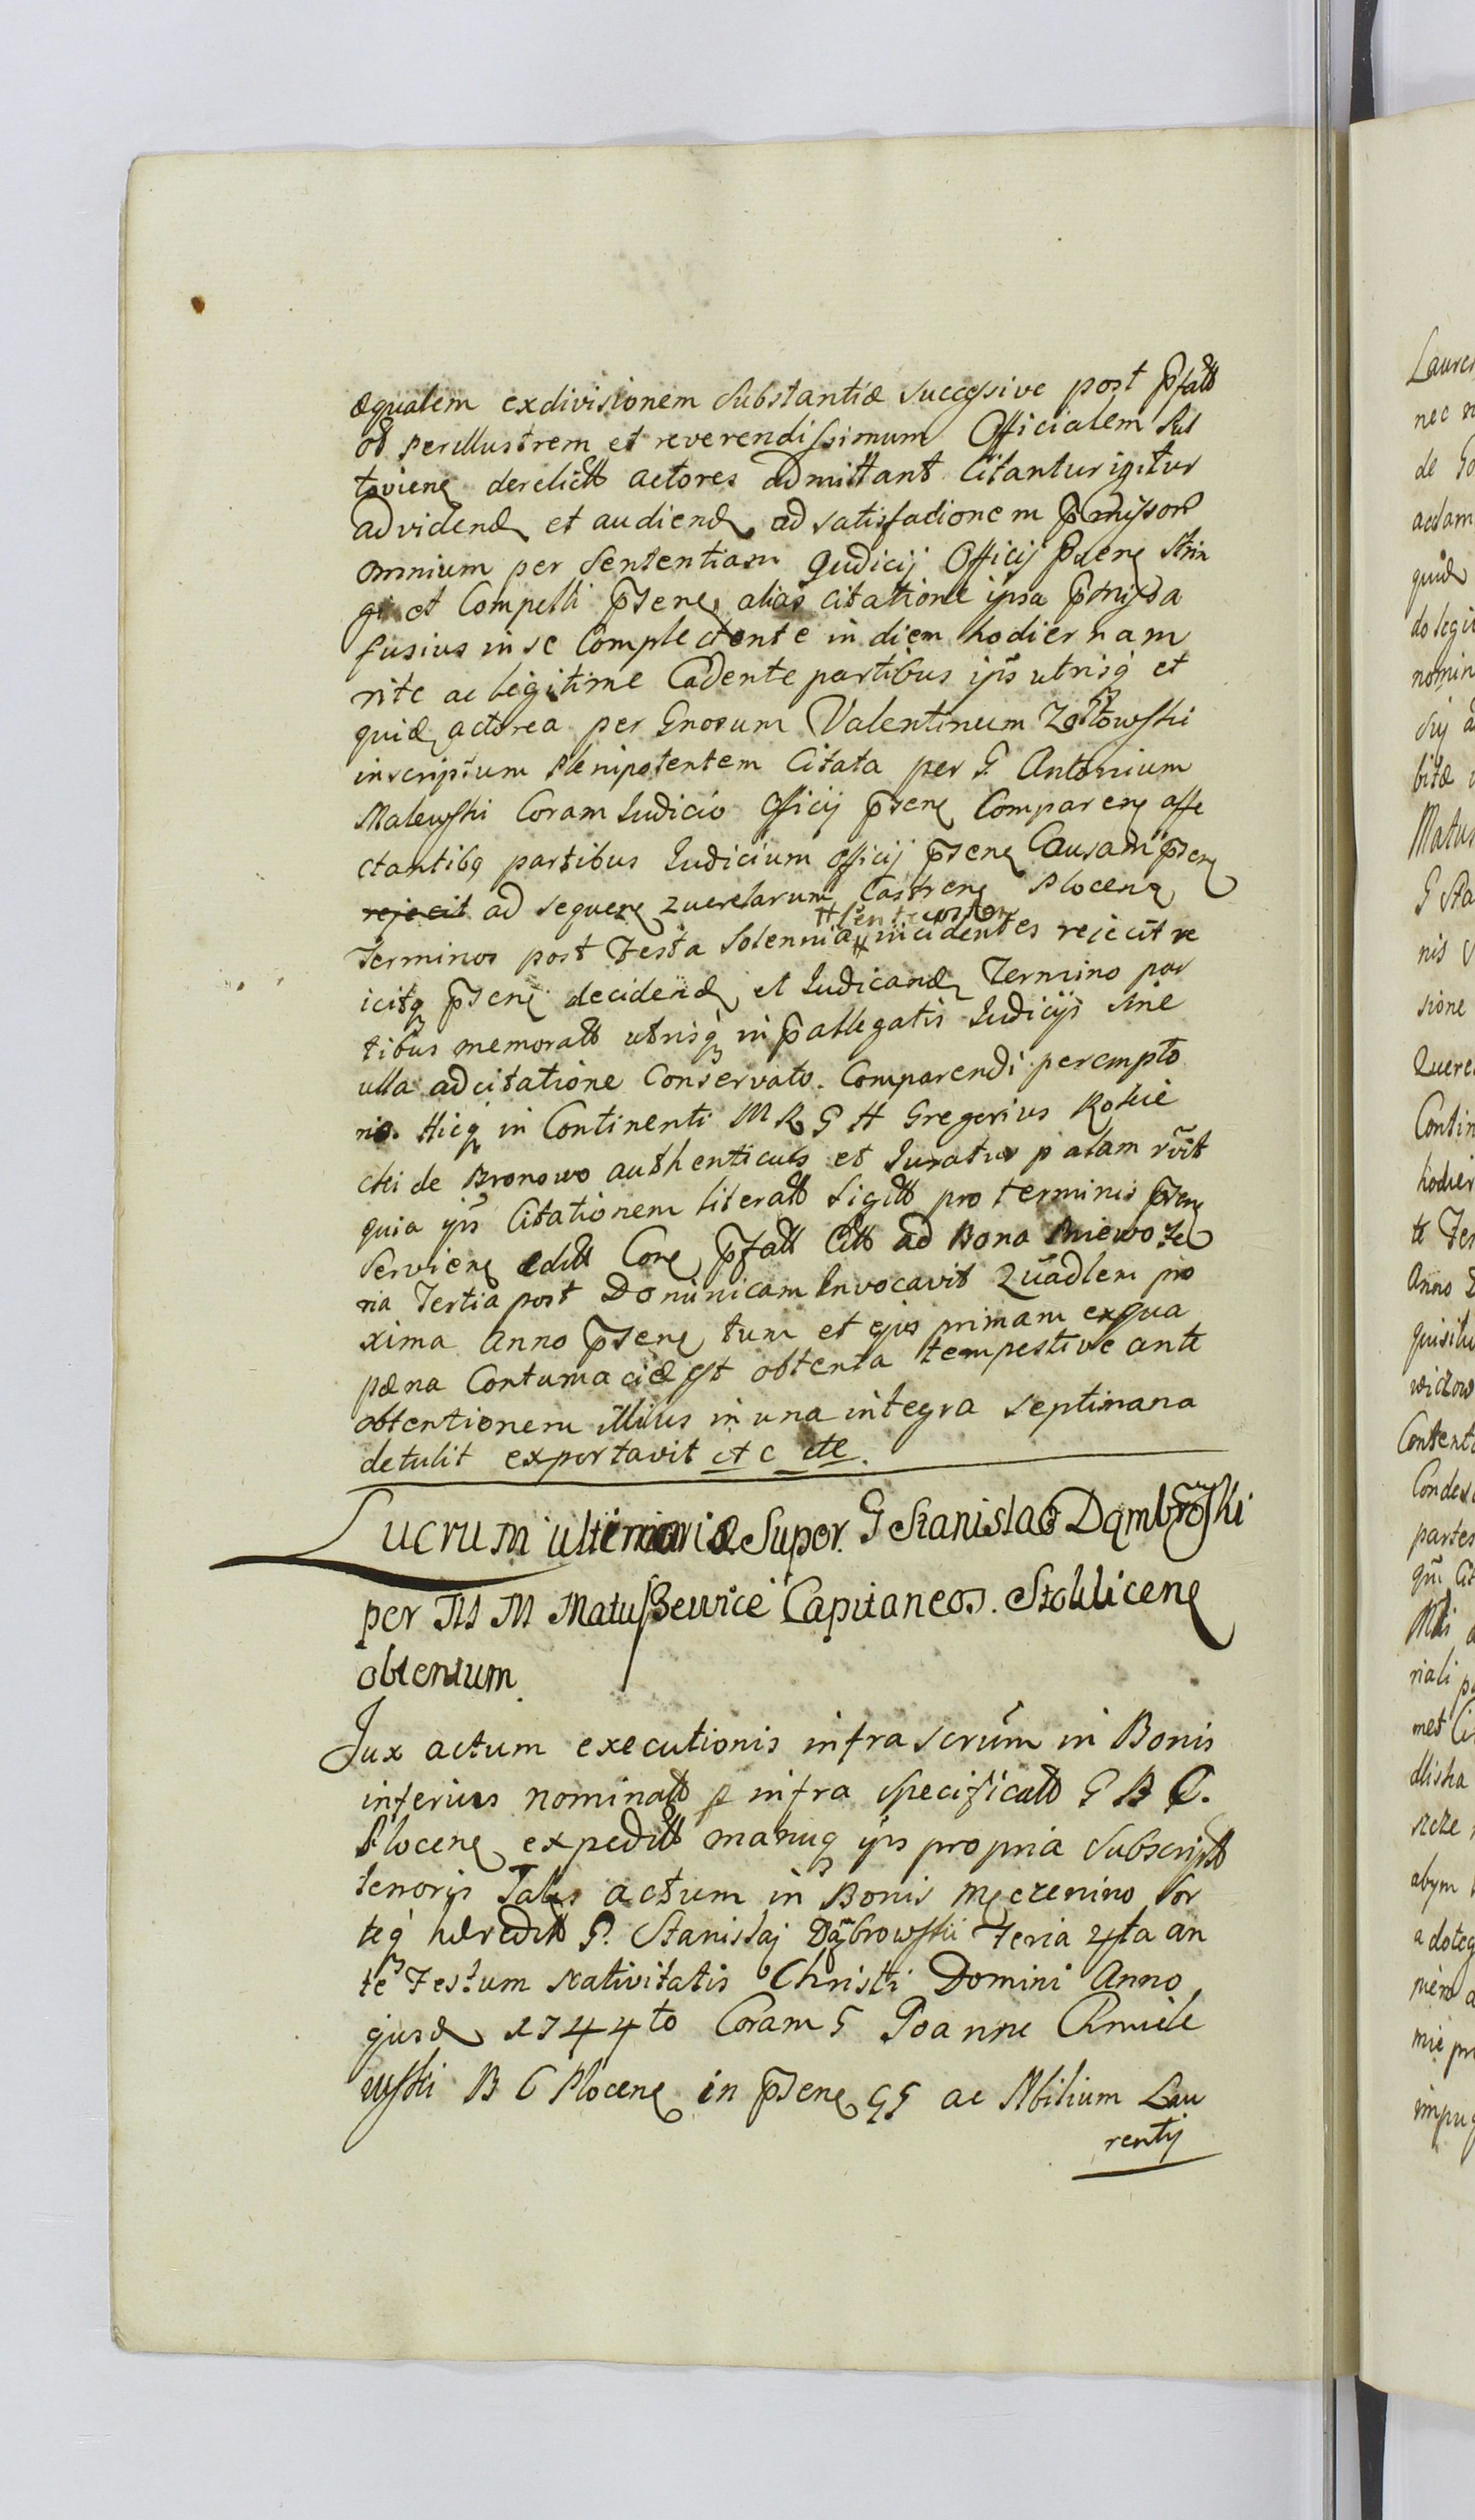 æqualem exdivisionem Substantiæ successive post p̃fatt
ob perillustrem et reverendissimum Officialem Pul
toviens derelictt actores admittant Citantur igitur
ad videnð et audienð ad satisfactionem p̃missor
omnium per Sententiam Judicij Officij p̃sens strin
gi et Compelli p̃sens alias citatione ipsa p̃missa
fusius in se Complectente in diem hodiernam
rite ac legitime Cadente partibus ips̃ utrisq et
quidę actorea per Gnosum Valentinum Zołtowski
inscriptum Plenipotentem Citata per G Antonium
Malewski Coram Iudicio Officij p̃sens Comparens affe
ctantibq partibus Iudicium officij p̃sens Causam p̃sens
rejecit ad sequens querelarum Castrens Plocens
# Pentecosten
Terminos post Festa Solennia # incidentes rejecit re
icitq p̃sens decidenð et Iudicanð Termino par
tibus memoratt utrisq in p̃allegatis Iudicijs sine
ulla adcitatione Conservato. Comparendi perempto
rio. Hicq in Continenti M R G H Gregorius Rokic
cki de Bronowo authenticus et Iuratus palam r̃vit
quia ips̃ Citationem literatt Sigilt pro terminis p̃sens
Serviens editt Cors p̃fatt Citt ad Bona Miewo Fe
ria Tertia post Dominicam Invocavit Quadlem pro
xima Anno p̃sens tum et ejus primam ex qua
pæna Contumaciæ est obtenta tempestive ante
obtentionem illius in una integra septimana
detulit exportavit et c etc.
Lucrum ulterioris Super. G Stanislao Dąmbrowski
per M M Matuszewice Capitaneos. Stoklicens
obtentum
Jux actum executionis infra scrũm in Bonis
inferius nominatt p infra specificatt G B C.
Plocens expeditt manuq ips propria Subscriptt
tenoris Talis actum in Bonis Męczenino Sor
teq hæreditt G. Stanislaj Dąbrowski Feria 4ta an
te Festum Nativitatis Christi Domini Anno
ejusð 1744to Coram G Joanne Chmiele
wski B C Plocens in p̃sens GG ac Nbilium Lau
rentij